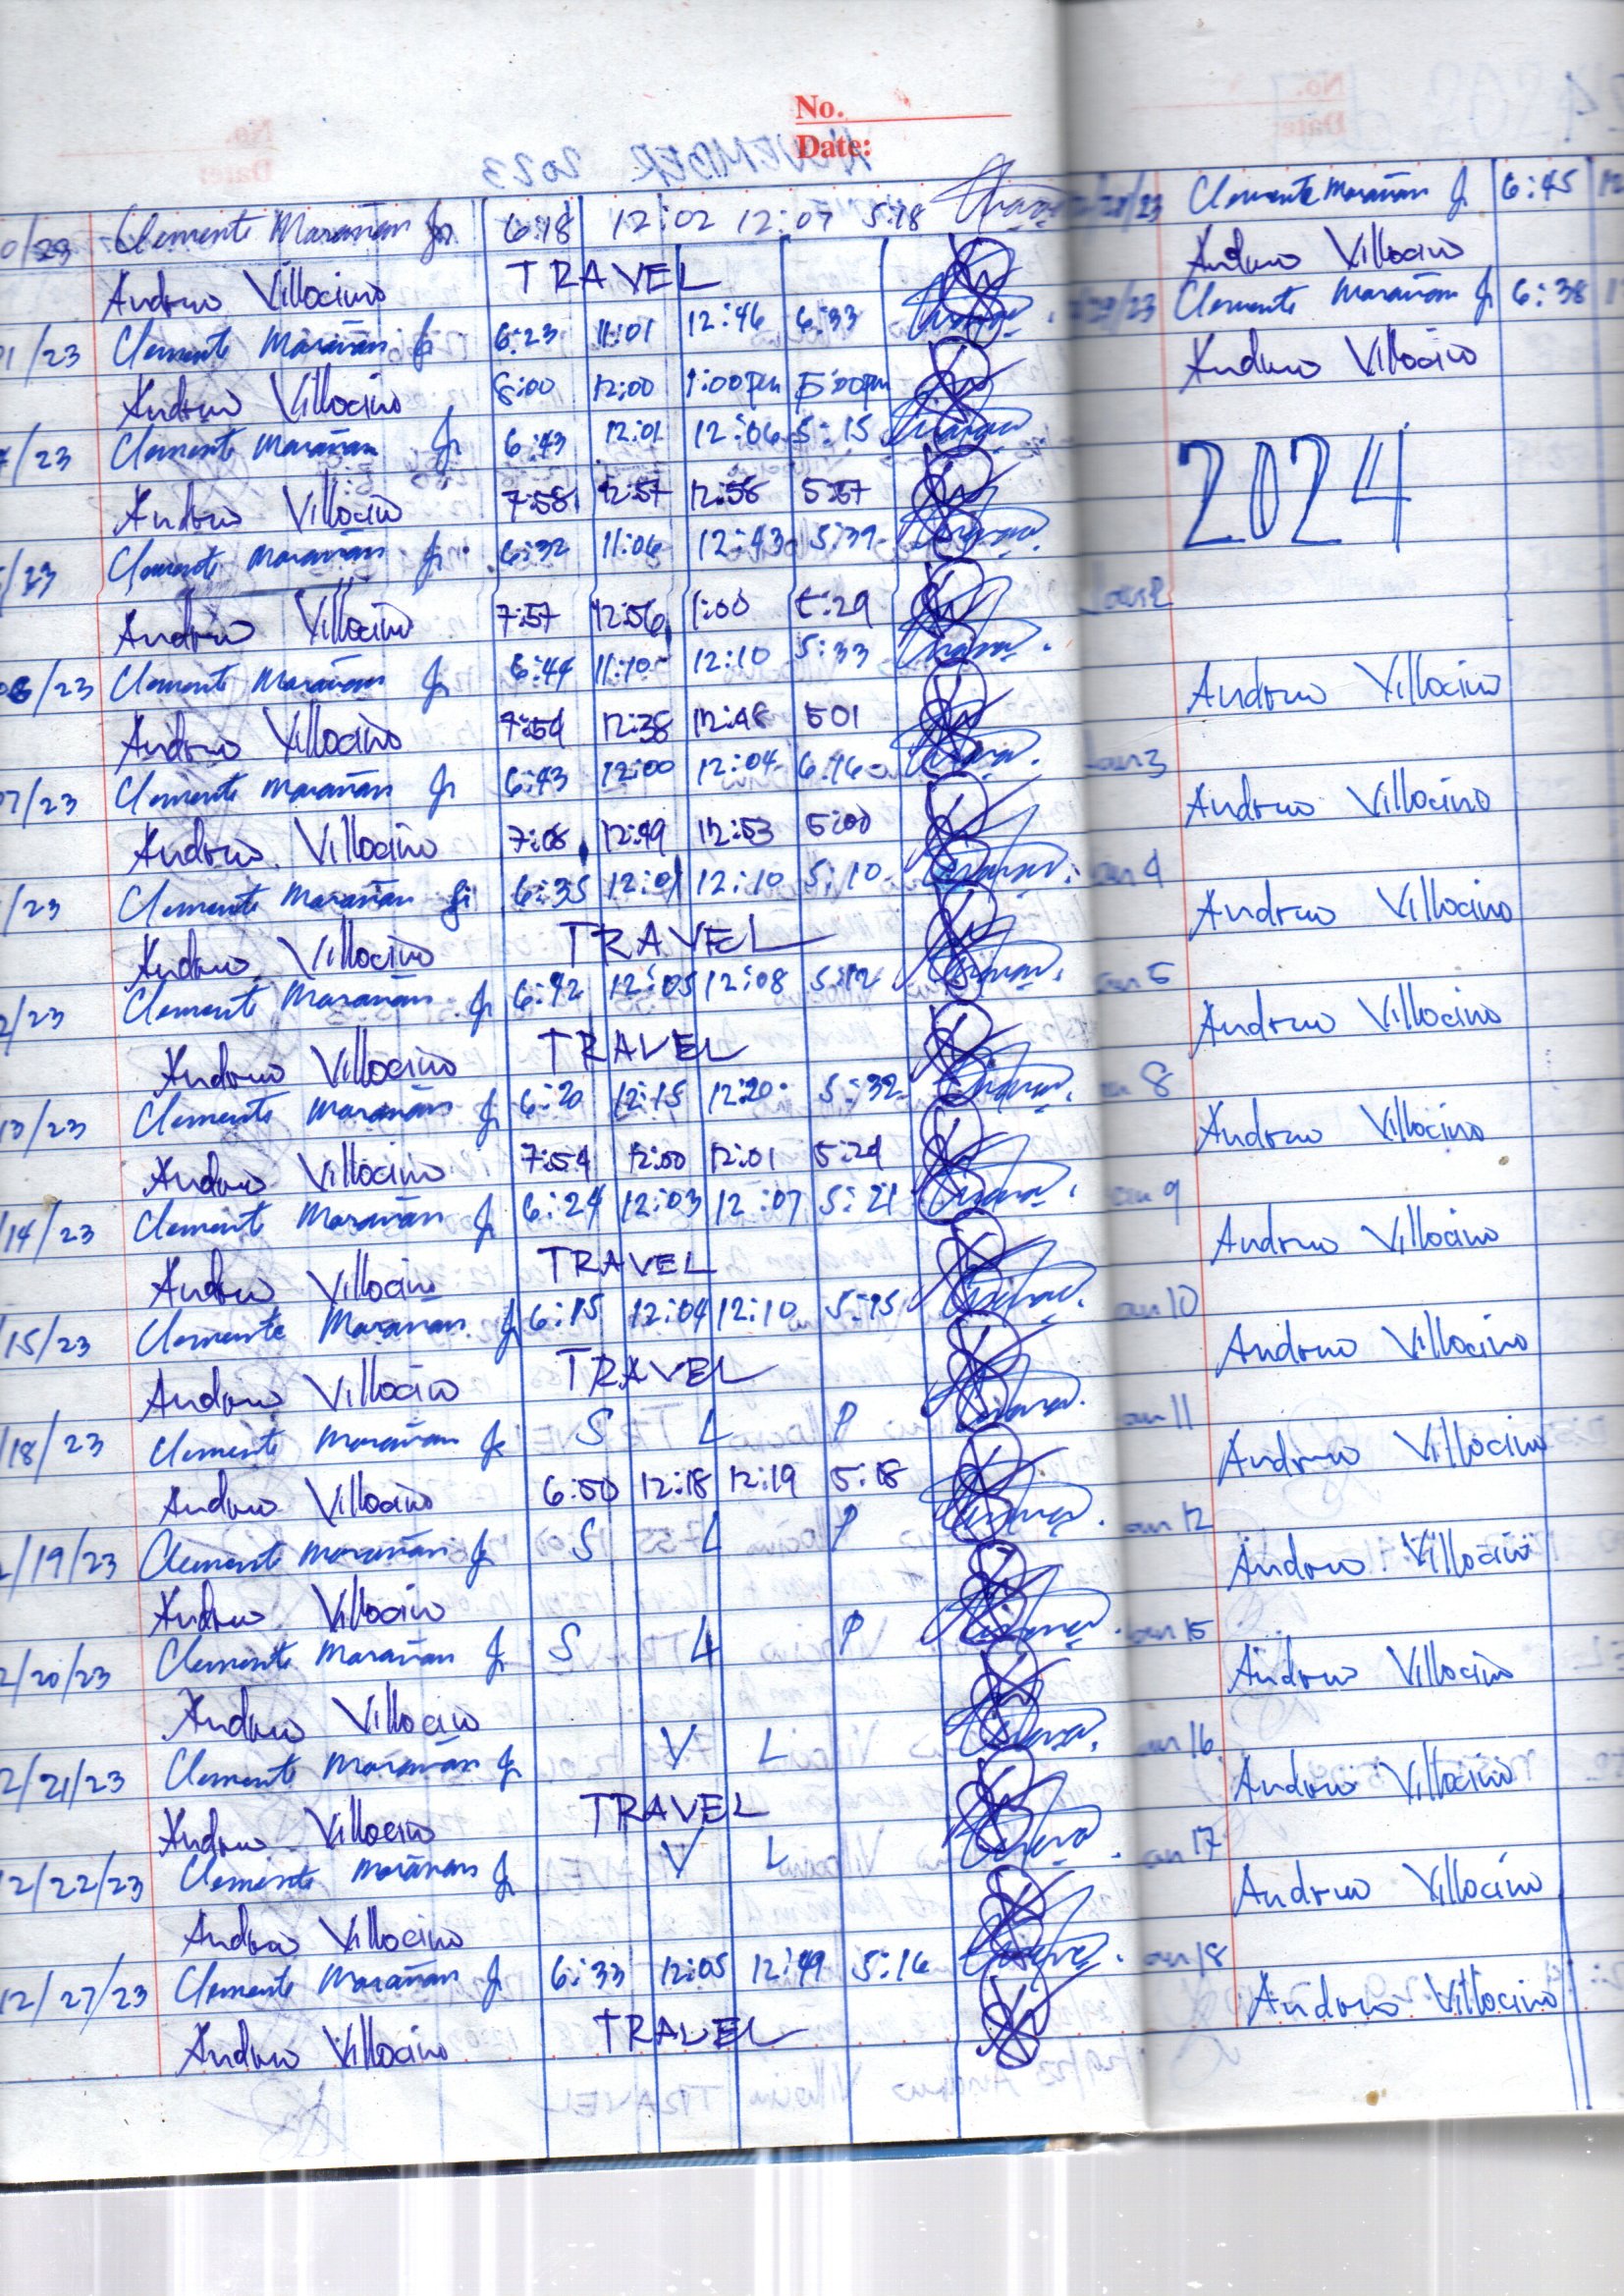 No.
Date:
0/23 Clemente Marañan Jr 6:18 12:02 12:07 5:18
Andrew Villocino TRAVEL
01/23 Clemente Marañan Jr 6:23 11:01 12:46 6:33
Andrew Villocino 8:00 12:00 1:00pm 5:00pm
/23 Clemente Marañan Jr 6:43 12:01 12:06 5:15
Andrew Villocino 7:58 12:57 12:58 5:57
/23 Clemente Marañan Jr 6:32 11:06 12:43 5:39
Andrew Villocino 7:57 12:56 1:00 5:29
06/23 Clemente Marañan Jr 6:44 11:10 12:10 5:33
Andrew Villocino 7:54 12:38 12:48 501
07/23 Clemente Marañan Jr 6:43 12:00 12:04 6:16
Andrew Villocino 7:08 12:49 12:53 5:00
/23 Clemente Marañan Jr 6:35 12:01 12:10 5:10
Andrew Villocino TRAVEL
2/23 Clemente Marañan Jr 6:42 12:05 12:08 5:12
Andrew Villocino TRAVEL
13/23 Clemente Marañan Jr 6:20 12:15 12:20 5:32
Andrew Villocino 7:54 12:00 12:01 5:24
/14/23 Clemente Marañan Jr 6:24 12:03 12:07 5:21
Andrew Villocino TRAVEL
/15/23 Clemente Marañan Jr 6:15 12:04 12:10 5:15
Andrew Villocino TRAVEL
/18/23 Clemente Marañan Jr S L P
Andrew Villocino 6:50 12:18 12:19 5:18
2/19/23 Clemente Marañan Jr S L P
Andrew Villocino
2/20/23 Clemente Marañan Jr S L P
Andrew Villocino
2/21/23 Clemente Marañan Jr V L
Andrew Villocino TRAVEL
12/22/23 Clemente Marañan Jr V L
Andrew Villocino
12/27/23 Clemente Marañan Jr 6:33 12:05 12:49 5:16
Andrew Villocino TRAVEL
/28/23 Clemente Marañan Jr 6:45
Andrew Villocino
/29/23 Clemente Marañan Jr 6:38
Andrew Villocino
2024
Jan 2
Andrew Villocino
Jan 3
Andrew Villocino
an 4
Andrew Villocino
an 5
Andrew Villocino
an 8
Andrew Villocino
an 9
Andrew Villocino
an 10
Andrew Villocino
an 11
Andrew Villocino
an 12
Andrew Villocino
an 15
Andrew Villocino
an 16
Andrew Villocino
an 17
Andrew Villocino
an 18
Andrew Villocino